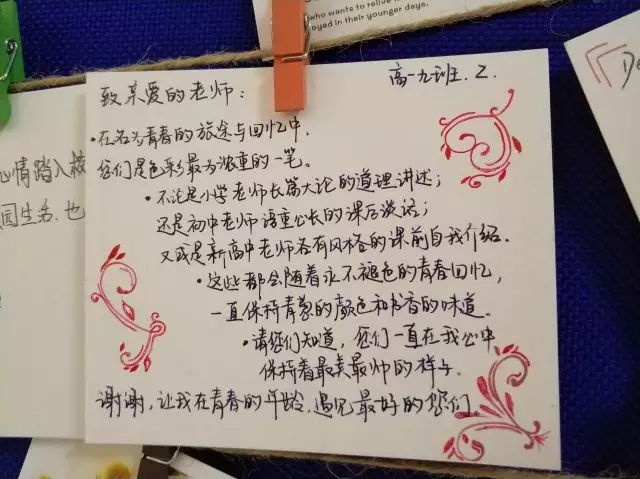 who wants to relive
oyed in their younger days.
高一九班.Z.
致亲爱的老师：
·在名为青春的旅途与回忆中,
您们是色彩最为浓重的一笔。
·不论是小学老师长篇大论的道理讲述；
还是初中老师语重心长的课后谈话；
又或是新高中老师各有风格的课前自我介绍.
·这些都会随着永不褪色的青春回忆,
一直保持青葱的颜色和书香的味道。
·请您们知道，您们一直在我心中
保持着最美最帅的样子。
谢谢,让我在青春的年龄,遇见最好的您们.
心情踏入校
园生活.也
De